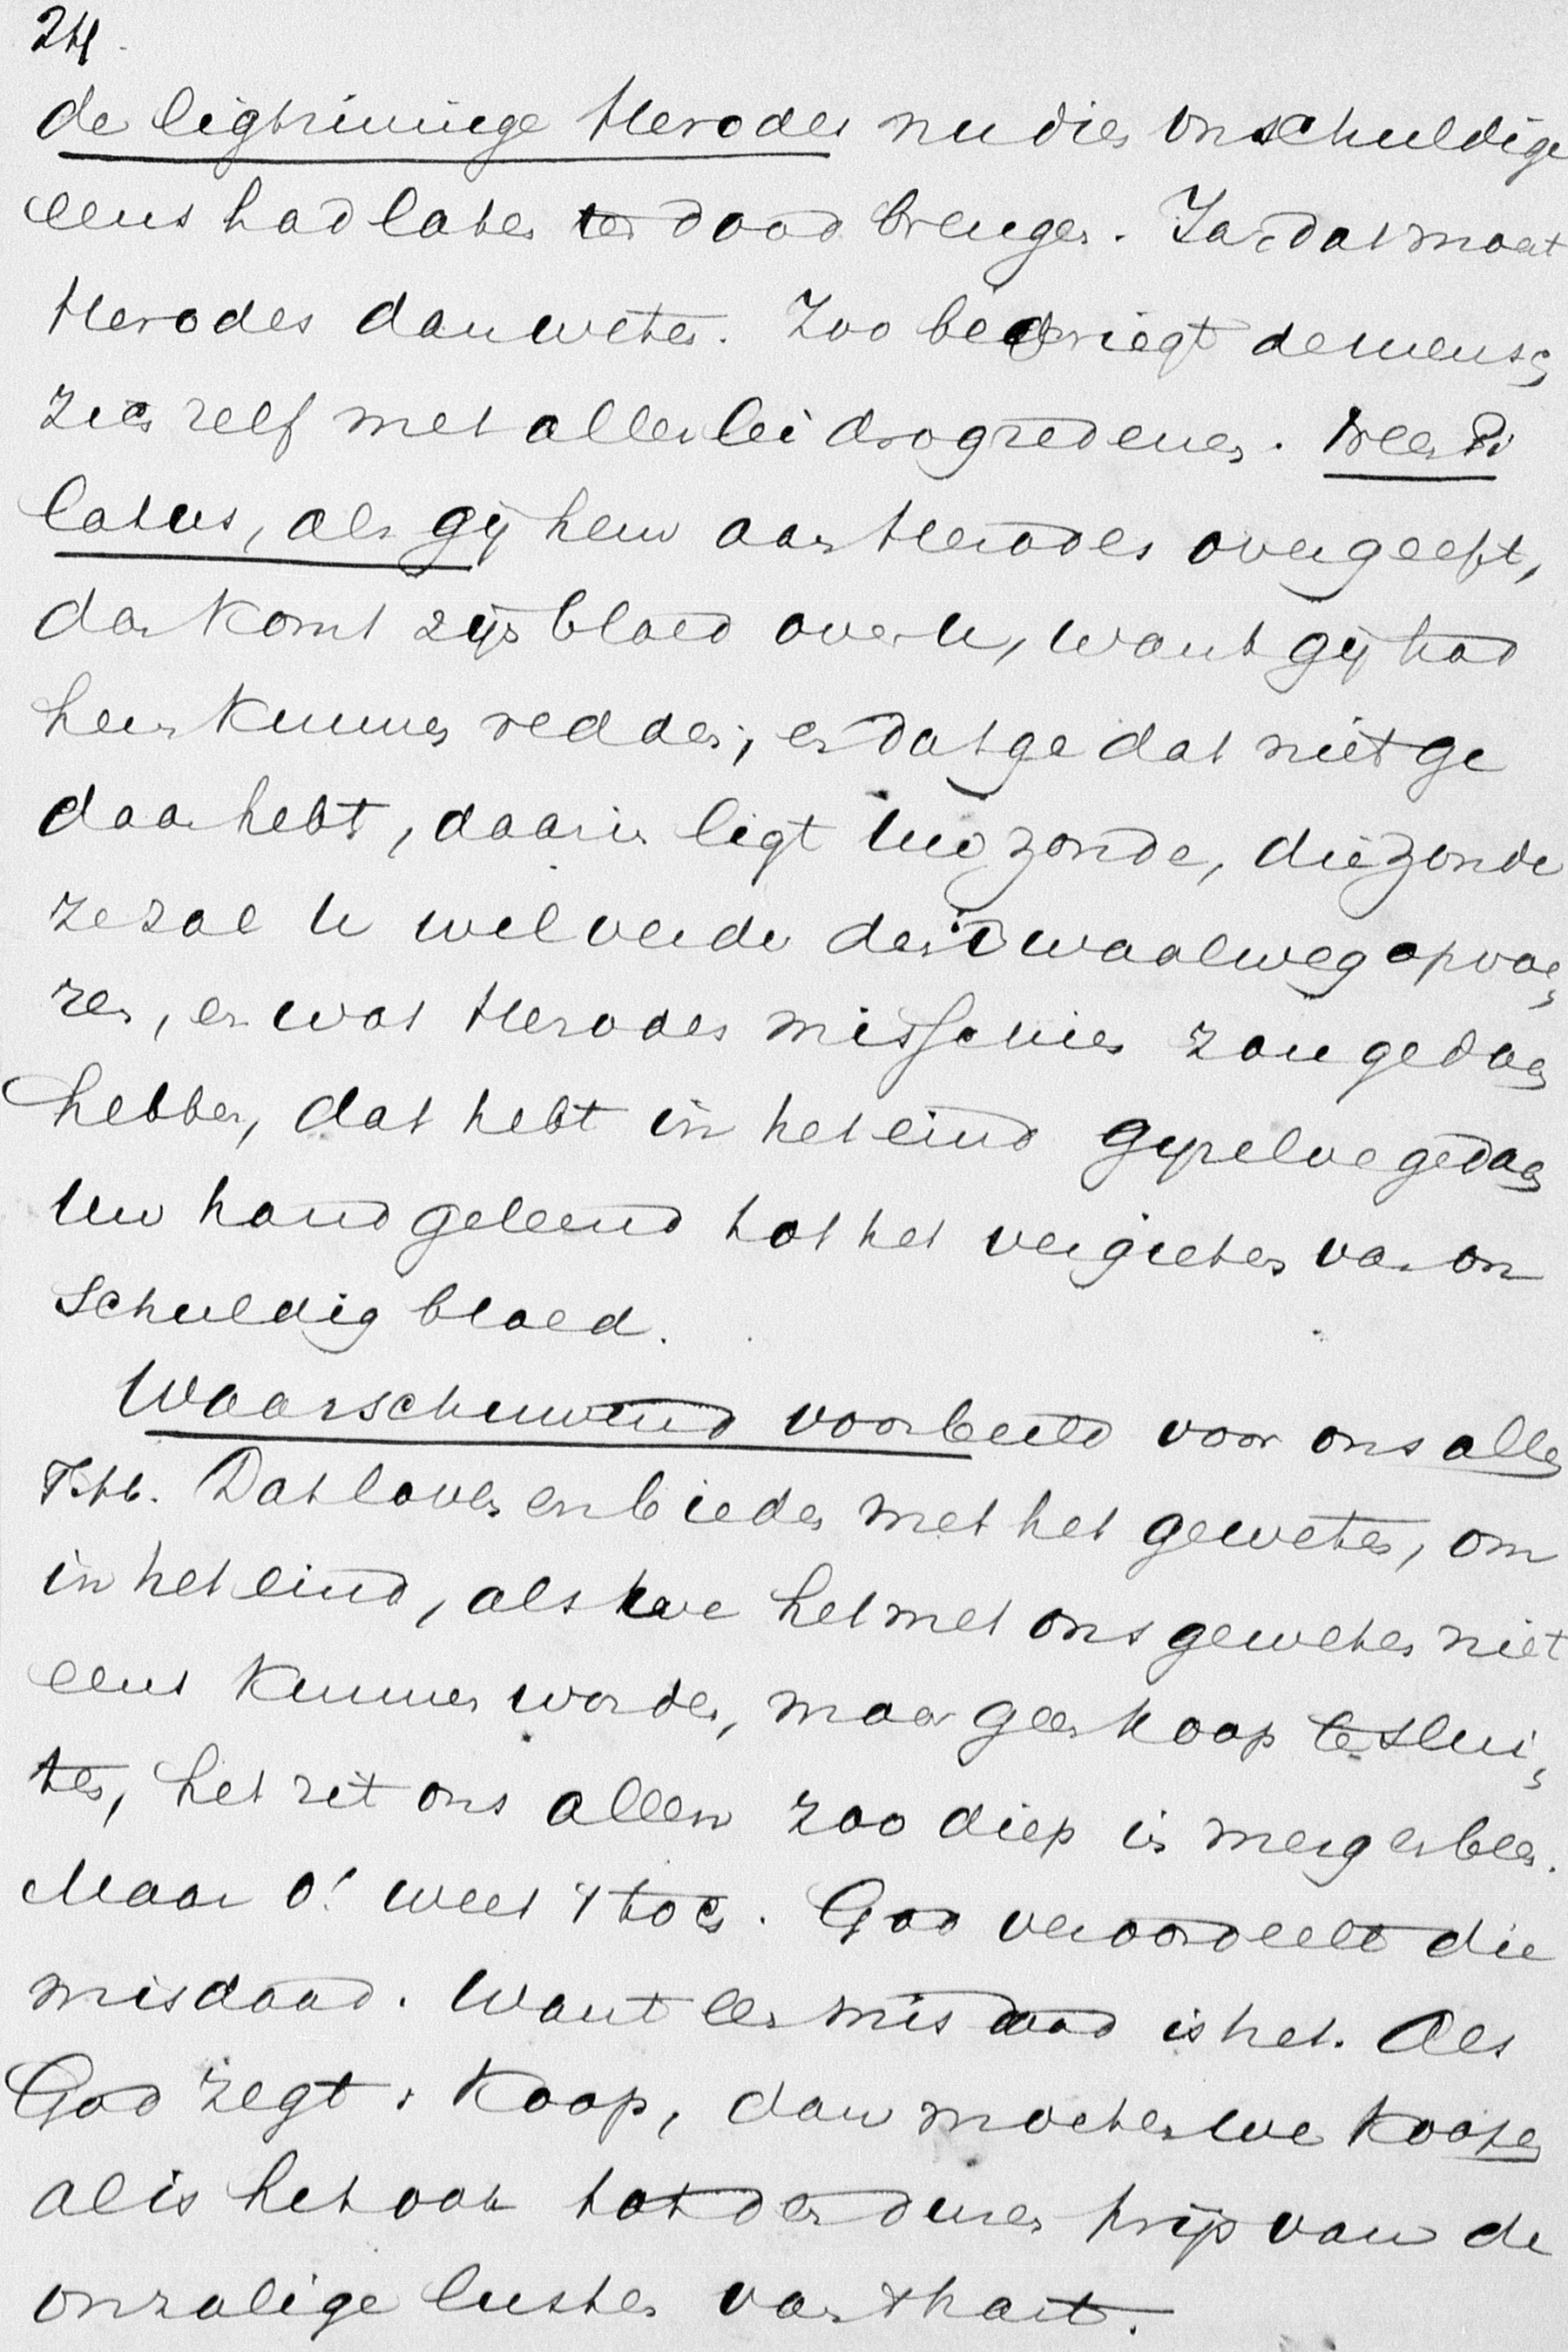 24.
de ligtzinnige Herodes nu dien onschuldige
eens had laten ter dood brengen. Ja, dat moet
Herodes dan weten. Zoo bedriegt de mensch
zich zelf met allerlei drogredenen. Neen Pi
latus, als gij hem aan Herodes overgeeft,
dan komt zijn bloed over u, want gij had
hem kunnen redden; en dat ge dat niet ge
daan hebt, daarin ligt uw zonde, die zonde
ze zal u wel verder den dwaalweg opvoe
ren, en wat Herodes misschien zou gedaan
hebben, dat hebt in het eind gij zelve gedaan
Uw hand geleend tot het vergieten van on
schuldig bloed.
Waarschuwend voorbeeld voor ons allen
Dat loven en bieden met het geweten, om
in het eind, als we het met ons geweten niet
eens kunnen worden, maar geen koop te slui
ten, het zit ons allen zoo diep in merg en been.
Maar o! weet 't toch. God veroordeelt die
misdaad. Want een misdaad is het. Als
God zegt: Koop, dan moeten we koopen
al is het ook tot den duren prijs van de
onzalige lusten van 't hart.